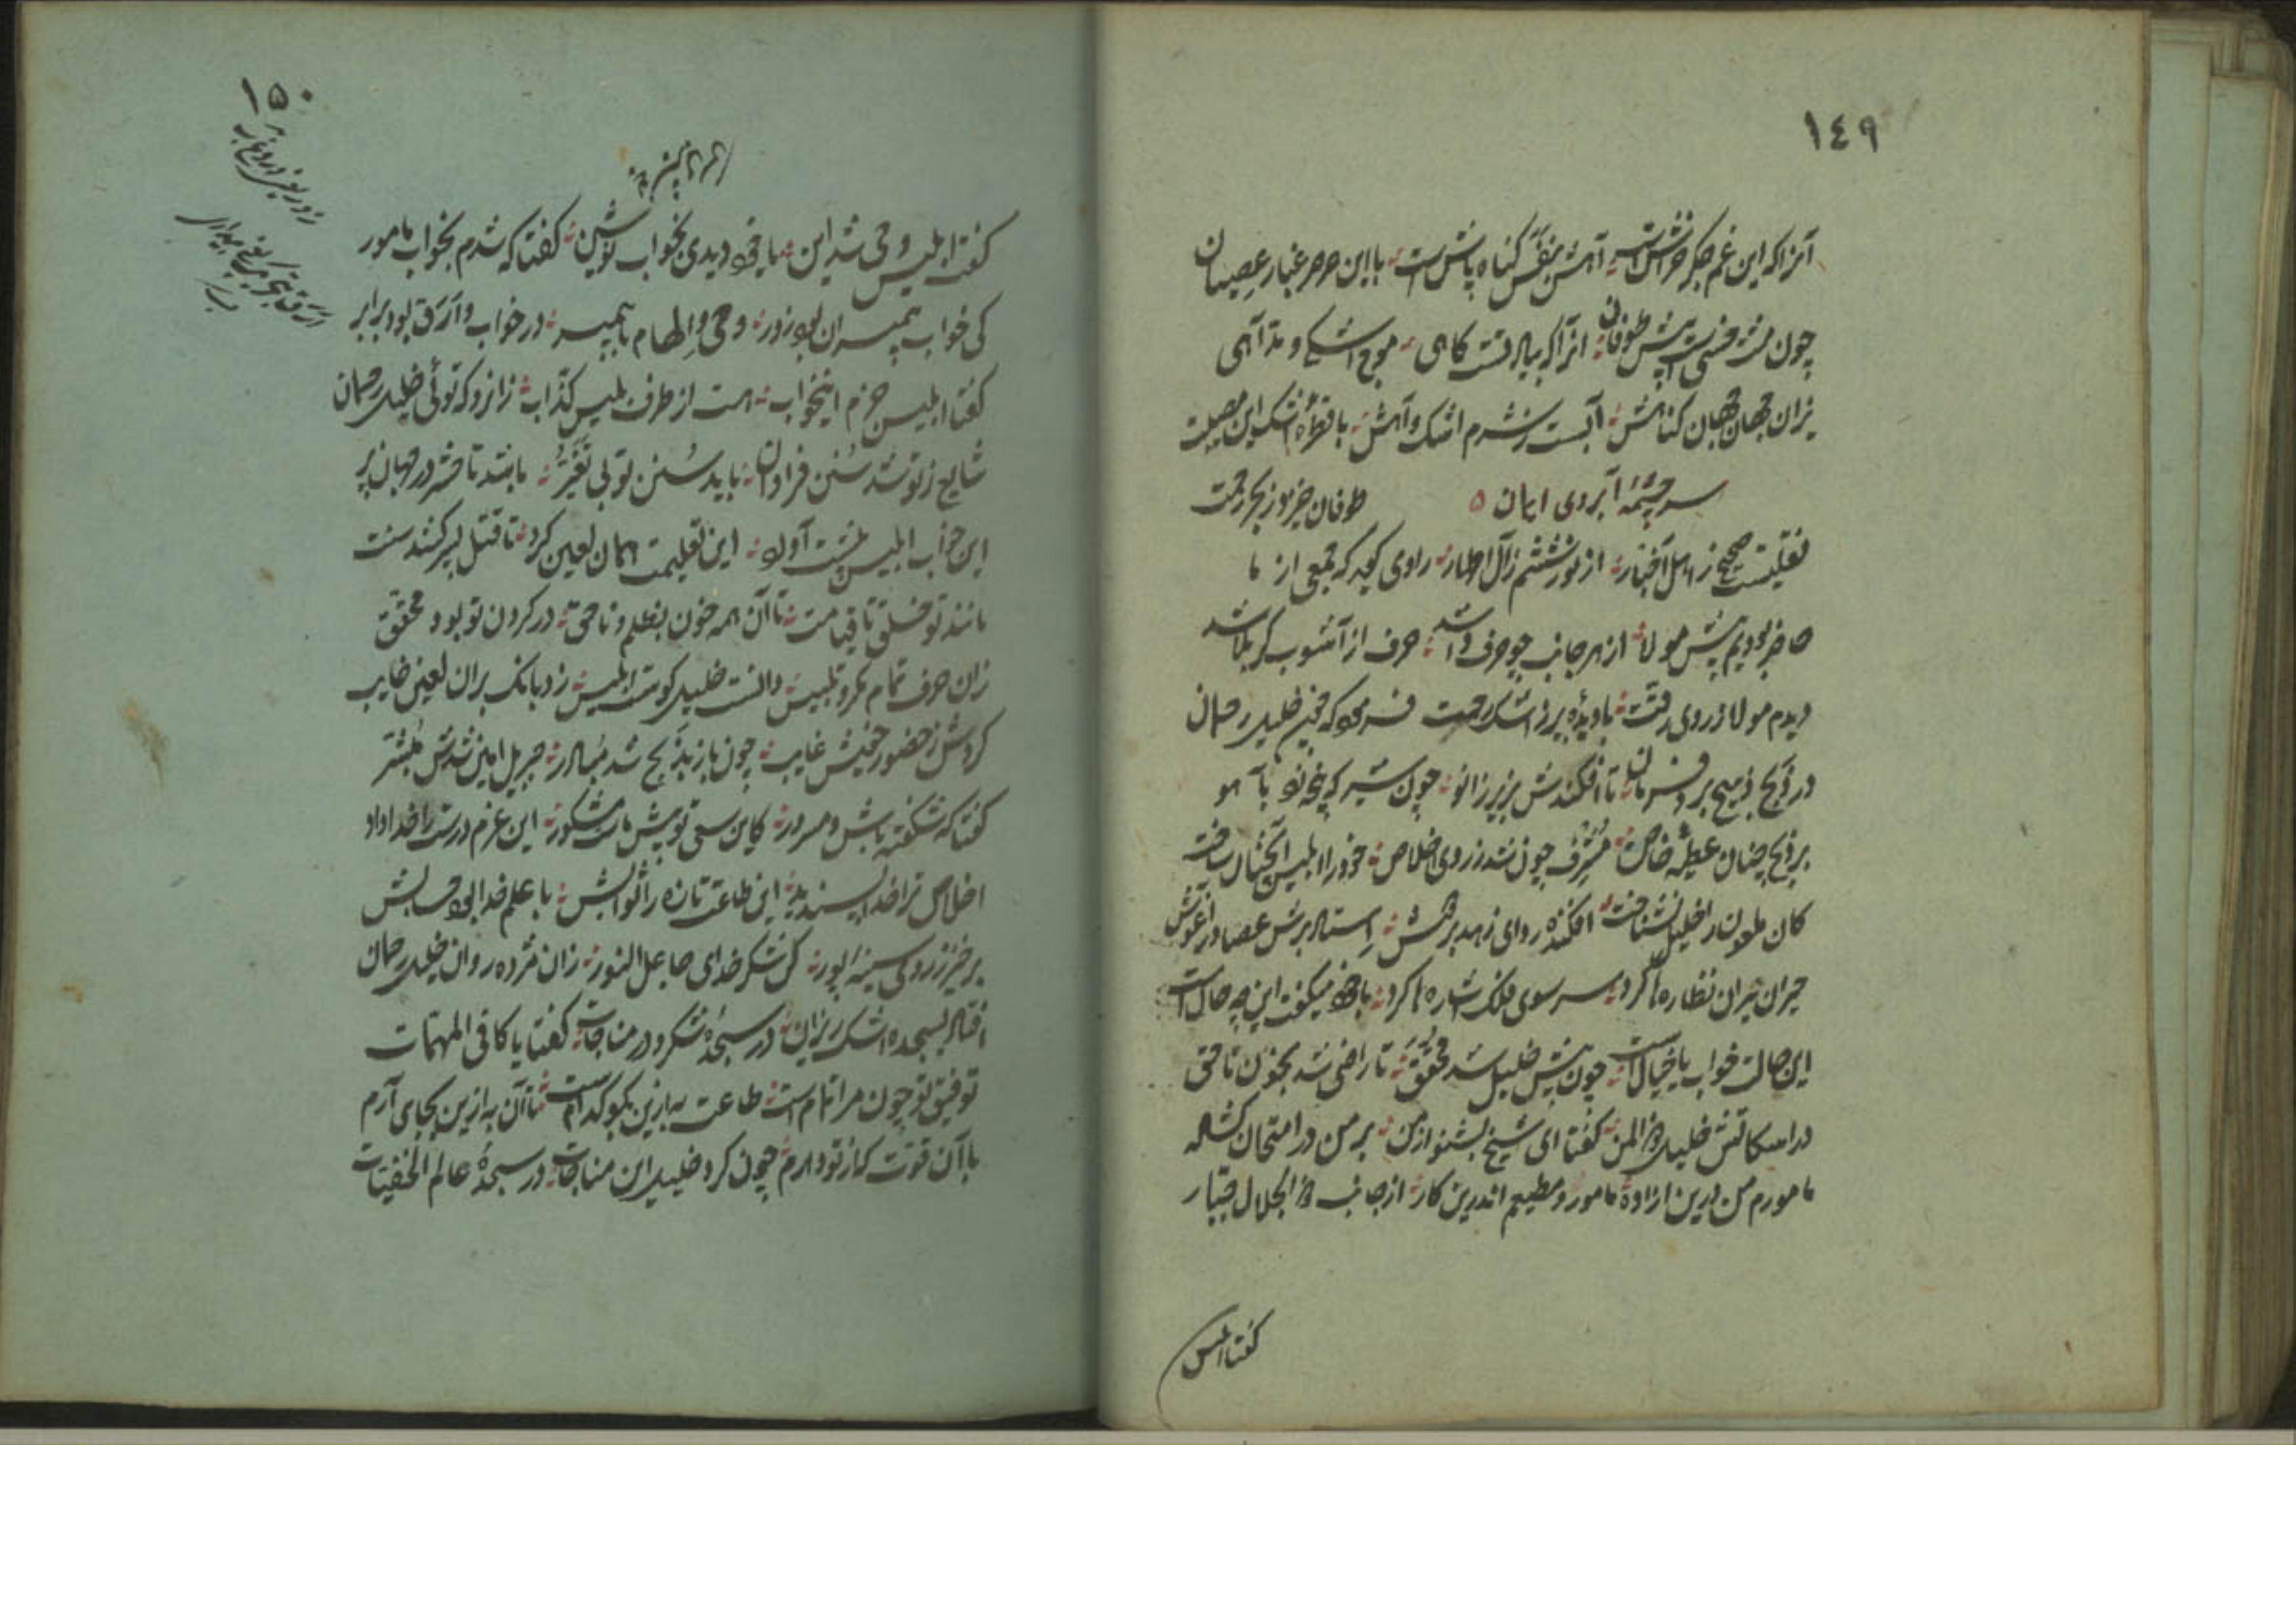 ١٤٩
آنرا که این غم جگر خراش است آهش بنفس گناه پاش است با این صرصر غبار عصیان
چون مشت خسی است پیش طوفان آنرا که بیاد تست کاهی موج اشکی و مد آهی
نزان جهان جهان گناهش آبست ز شرم اشک و آهش با قطره اشک این مصیبت
سر چشمهٔ آبروی ایمان
طوفان خیزد ز بحر رحمت
نقلیست صحیح ز اهل اخبار از نور ششم ز آل اطهار راوی گوید که جمعی از ما
حاضر بودیم پیش مولا از هر جانب چو حرف وا شد حرف از آشوب کربلا شد
دیدم مولا ز روی رقت با دیده پر ز اشک رحمت فرمود که چون خلیل رحمان
در ذبح ذبیح برد فرمان تا افکندش بزیر زانو چون شیر که پنجه زد بآهو
بر ذبح چنان عطیه خاص مشرف چون شد ز روی اخلاص خود را ابلیس آنچنان ساخت
کان ملعون را خلیل نشناخت افکنده ردای زهد بر دوش استاد برش عصا در آغوش
حیران حیران نظاره‌ها کرد سر سوی فلک اشاره‌ها کرد با خود میگفت این چه حال است
این حالت خواب یا خیال است چون پیش خلیل شد محقق تا راضی شد بخون ناحق
در امساکش خلیل ذو المن گفتا ای شیخ بشنو از من بر من در امتحان گشاده
مامورم من درین اراده مامور و مطیعم اندرین کار از جانب ذو الجلال جبار
گفتا ابلیس
١٥٠
گفت ابلیس وحی شد این یا خود دیدی بخواب نوشین گفتا که شدم بخواب مامور
کی خواب پیمبران بود زور وحی و الهام با پیمبر در خواب و ارق بود برابر
گفتا ابلیس جزم اینخواب هست از طرف بلیس کذاب زانرو که توئی خلیل رحمان
شایع ز تو شد سنن فراوان باید سنن تو بی تغیر باشد تا حشر در جهان پر
این خواب ابلیس پیشت آورد این تعلیمت همان لعین کرد تا قتل پسر کنند سنت
مانند تو خلق تا قیامت تا آن همه خون بظلم و ناحق در گردن تو بود محقق
زان حرف تمام مکر و تلبیس دانست خلیل کوست ابلیس زد بانگ بران لعین خایب
کردش ز حضور خویش غایب چون باز بذبح شد مبادر جبریل امین شدش مبشر
گفتا که شکفته باش و مسرور کاین سعی تو پیش ماست مشکور این عزم درست را خدا داد
اخلاص ترا خدا پسندید این طاعت تازه را ثوابش با علم خدا بود حسابش
برخیز ز روی سینه پور کن شکر خدای جاعل النور زان مژده روان خلیل رحمان
افتاد بسجده اشک ریزان در سجدهٔ شکر و در مناجات گفتا یا کافی المهمات
توفیق تو چون مرا تمام است طاعت به ازین بگو کدام است تا آن به ازین بجای آرم
با آن قوت کز تو دارم چون کرد خلیل این مناجات در سجدهٔ عالم الخفیات